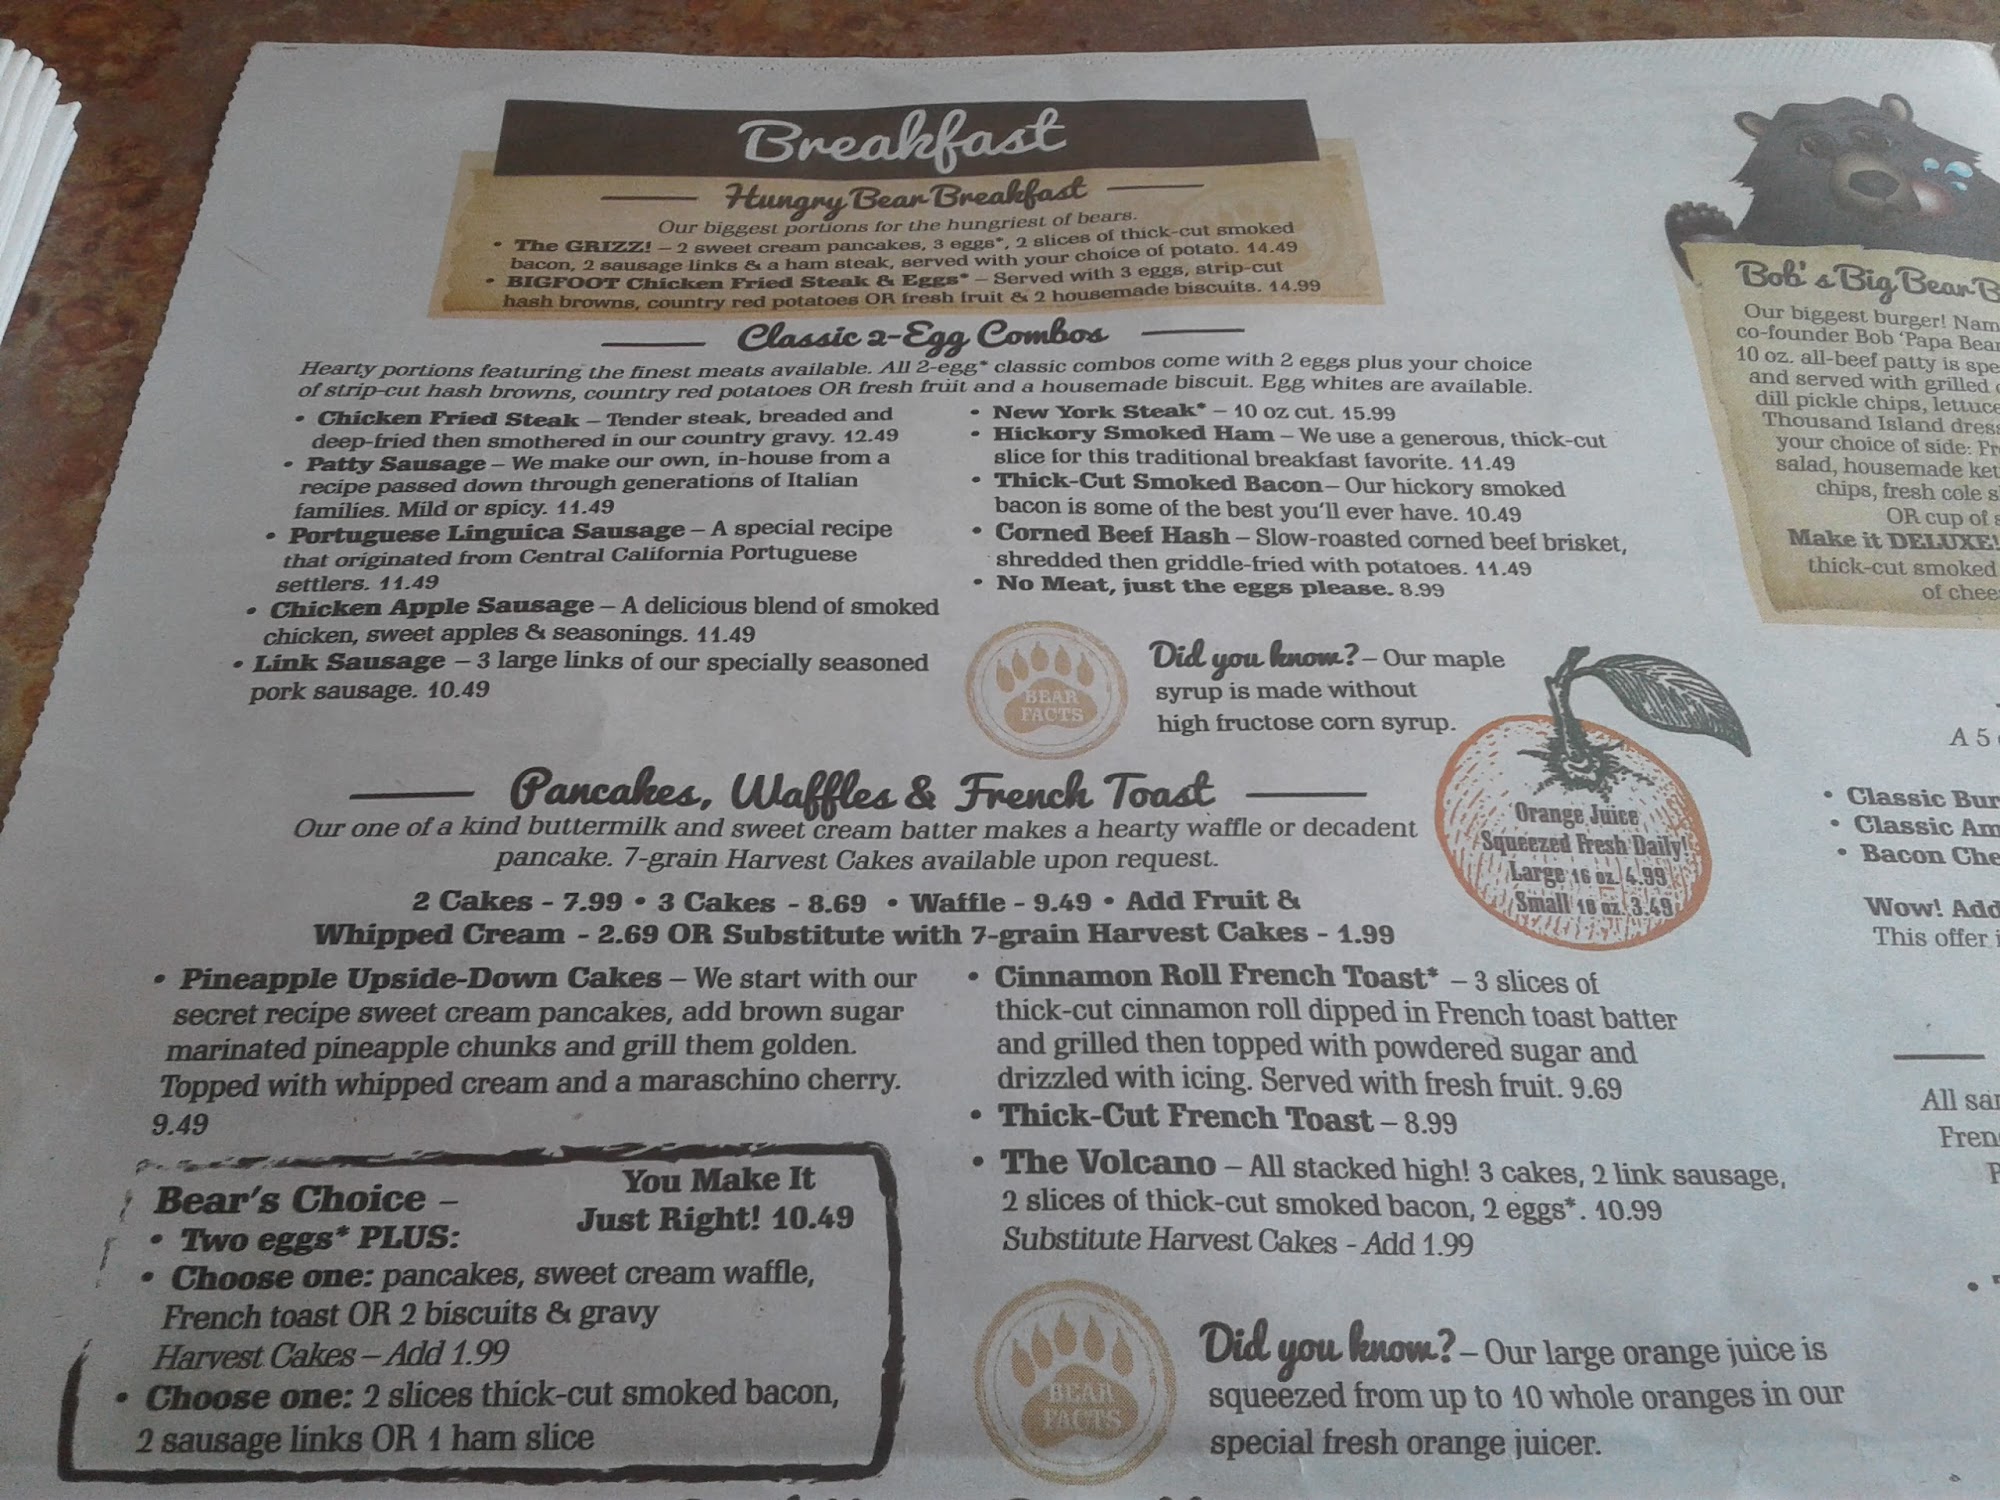 Breakfast
Hungry Bear Breakfast
Our biggest portions for the hungriest of bears.
• The GRIZZ! – 2 sweet cream pancakes, 3 eggs*, 2 slices of thick-cut smoked
bacon, 2 sausage links & a ham steak, served with your choice of potato. 14.49
• BIGFOOT Chicken Fried Steak & Eggs* – Served with 3 eggs, strip-cut
hash browns, country red potatoes OR fresh fruit & 2 housemade biscuits. 14.99
Classic 2-Egg Combos
Hearty portions featuring the finest meats available. All 2-egg* classic combos come with 2 eggs plus your choice
of strip-cut hash browns, country red potatoes OR fresh fruit and a housemade biscuit. Egg whites are available.
• Chicken Fried Steak – Tender steak, breaded and
deep-fried then smothered in our country gravy. 12.49
• Patty Sausage – We make our own, in-house from a
recipe passed down through generations of Italian
families. Mild or spicy. 11.49
• Portuguese Linguica Sausage – A special recipe
that originated from Central California Portuguese
settlers. 11.49
• Chicken Apple Sausage – A delicious blend of smoked
chicken, sweet apples & seasonings. 11.49
• Link Sausage – 3 large links of our specially seasoned
pork sausage. 10.49
• New York Steak* – 10 oz cut. 15.99
• Hickory Smoked Ham – We use a generous, thick-cut
slice for this traditional breakfast favorite. 11.49
• Thick-Cut Smoked Bacon– Our hickory smoked
bacon is some of the best you'll ever have. 10.49
• Corned Beef Hash – Slow-roasted corned beef brisket,
shredded then griddle-fried with potatoes. 11.49
• No Meat, just the eggs please. 8.99
BEAR
FACTS
Did you know? – Our maple
syrup is made without
high fructose corn syrup.
Pancakes, Waffles & French Toast
Our one of a kind buttermilk and sweet cream batter makes a hearty waffle or decadent
pancake. 7-grain Harvest Cakes available upon request.
2 Cakes - 7.99 • 3 Cakes - 8.69 • Waffle - 9.49 • Add Fruit &
Whipped Cream - 2.69 OR Substitute with 7-grain Harvest Cakes - 1.99
Orange Juice
Squeezed Fresh Daily!
Large 16 oz. 4.99
Small 10 oz. 3.49
• Pineapple Upside-Down Cakes – We start with our
secret recipe sweet cream pancakes, add brown sugar
marinated pineapple chunks and grill them golden.
Topped with whipped cream and a maraschino cherry.
9.49
Bear's Choice –
You Make It
Just Right! 10.49
• Two eggs* PLUS:
• Choose one: pancakes, sweet cream waffle,
French toast OR 2 biscuits & gravy
Harvest Cakes – Add 1.99
• Choose one: 2 slices thick-cut smoked bacon,
2 sausage links OR 1 ham slice
• Cinnamon Roll French Toast* – 3 slices of
thick-cut cinnamon roll dipped in French toast batter
and grilled then topped with powdered sugar and
drizzled with icing. Served with fresh fruit. 9.69
• Thick-Cut French Toast – 8.99
• The Volcano – All stacked high! 3 cakes, 2 link sausage,
2 slices of thick-cut smoked bacon, 2 eggs*. 10.99
Substitute Harvest Cakes - Add 1.99
BEAR
FACTS
Did you know? – Our large orange juice is
squeezed from up to 10 whole oranges in our
special fresh orange juicer.
Bob's Big Bear B
Our biggest burger! Nam
co-founder Bob 'Papa Bear
10 oz. all-beef patty is spe
and served with grilled
dill pickle chips, lettuce
Thousand Island dres
your choice of side: Fr
salad, housemade ket
chips, fresh cole s
OR cup of s
Make it DELUXE!
thick-cut smoked
of chee
A 5
• Classic Bur
• Classic Am
• Bacon Che
Wow! Add
This offer i
All sa
Fren